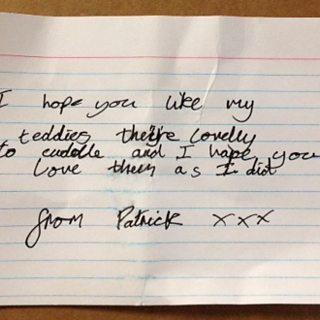 I hope you like my
teddies they're lovelly
to cuddle and I hope you
love them as I did
from Patrick xxx